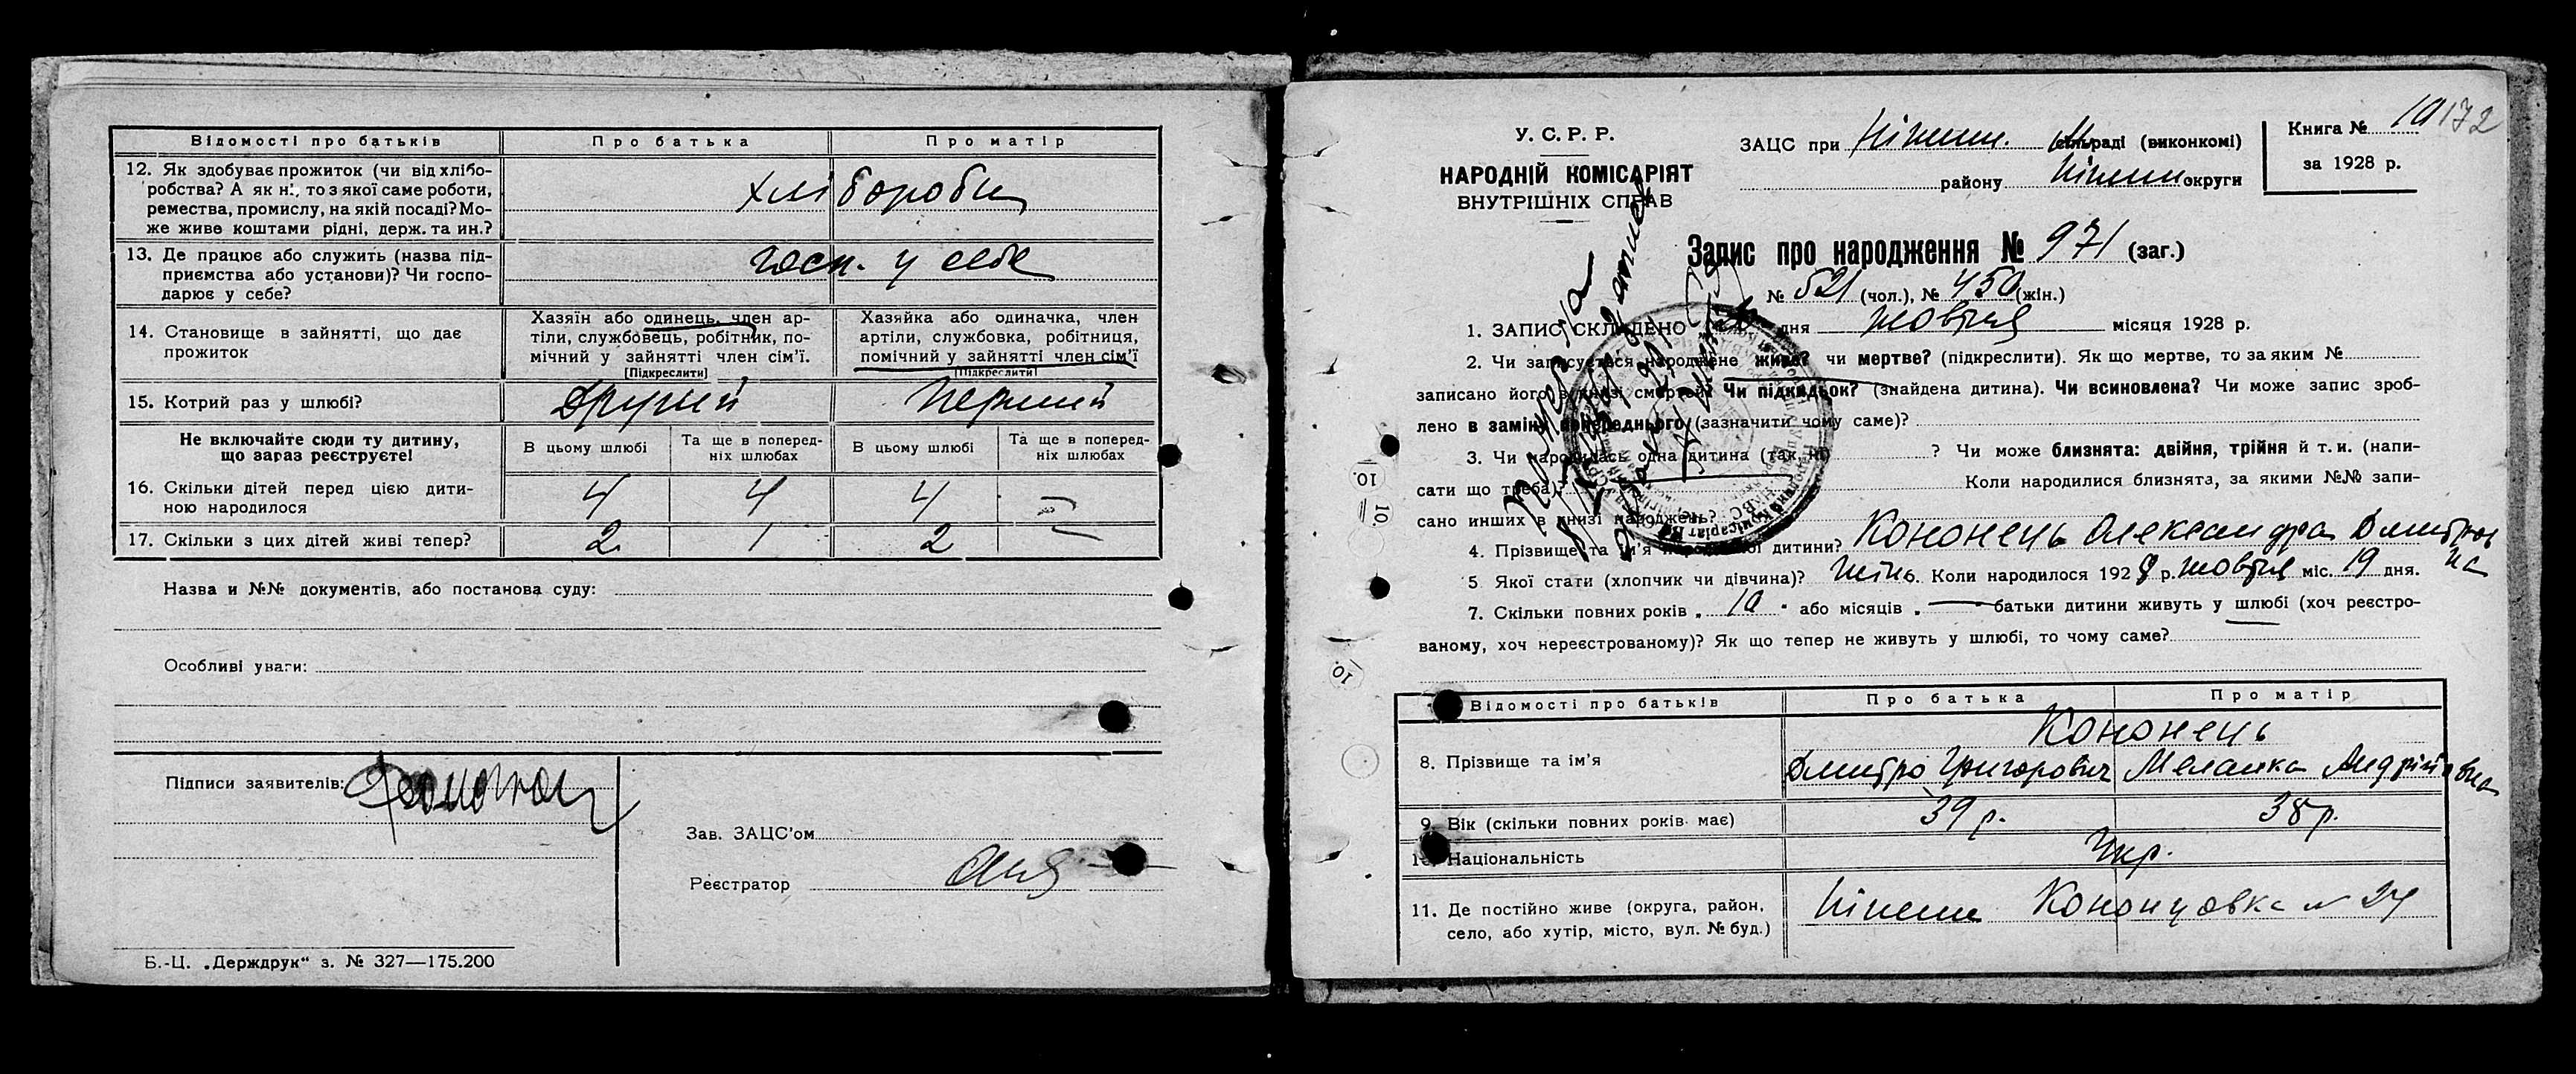 Відомості про батьків Про батька Про матір
12. Як здобуває прожиток (чи від хлібо-
робства? А як ні, то з якої саме роботи,
ремества, промислу, на якій посаді? Мо-
же живе коштами рідні, держ. та ин.?
хлібороби
13. Де працює або служить (назва під-
приємства або установи)? Чи госпо-
дарює у себе?
госп. у себе
14. Становище в зайнятті, що дає
прожиток
Хазяїн або одинець, член ар-
тіли, службовець, робітник, по-
мічний у зайнятті член сім'ї.
[Підкреслити]
Хазяйка або одиначка, член
артіли, службовка, робітниця,
помічний у зайнятті член сім'ї
[Підкреслити]
15. Котрий раз у шлюбі? другий перший
Не включайте сюди ту дитину,
що зараз реєструєте!
В цьому шлюбі
Та ще в поперед-
ніх шлюбах
В цьому шлюбі
Та ще в поперед-
ніх шлюбах
16. Скільки дітей перед цією дити-
ною народилося 4 4 4 —
17. Скільки з цих дітей живі тепер? 2 1 2 —
Назва и №№ документів, або постанова суду:
Особливі уваги:
Підписи заявителів:
Зав. ЗАЦС'ом
Реєстратор
Б.-Ц. „Держдрук“ з. № 327—175.200
У. С. Р. Р.
НАРОДНІЙ КОМІСАРІЯТ
ВНУТРІШНІХ СПРАВ
ЗАЦС при Ніжин. сільраді (виконкомі)
району Ніжин округи
Книга № 10
за 1928 р.
172
Запис про народження № 971 (заг.)
№ 521 (чол.), № 450 (жін.)
1. ЗАПИС СКЛАДЕНО дня жовтня місяця 1928 р.
2. Чи записується народжене живе? чи мертве? (підкреслити). Як що мертве, то за яким №
записано його в книзі смертей? Чи підкидьок? (знайдена дитина). Чи всиновлена? Чи може запис зроб-
лено в заміну попереднього (зазначити чому саме)?
3. Чи народилась одна дитина (так, ні) ? Чи може близнята: двійня, трійня й т. и. (напи-
сати що треба)? Коли народилися близнята, за якими №№ запи-
сано инших в книзі народжень?
4. Прізвище та ім'я народженої дитини? Кононець Олександра Дмитрів
на
5. Якої стати (хлопчик чи дівчина)? жін. 6. Коли народилося 1928 р. жовтня міс. 19 дня.
7. Скільки повних років „ 10 “ або місяців „ — “ батьки дитини живуть у шлюбі (хоч реєстро-
ваному, хоч нереєстрованому)? Як що тепер не живуть у шлюбі, то чому саме?
Відомості про батьків Про батька Про матір
8. Прізвище та ім'я
Кононець
Дмитро Григорович Меланка Андріївна
9. Вік (скільки повних років має) 39 р. 38 р.
10. Національність Укр.
11. Де постійно живе (округа, район,
село, або хутір, місто, вул. № буд.)
Ніжин Кононцовка № 24